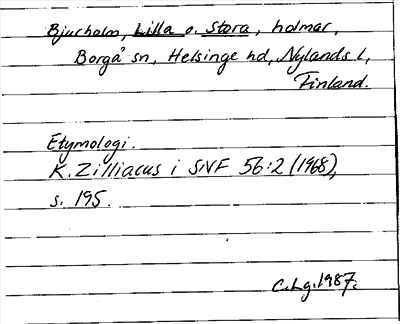 Bjurholm, Lilla o. Stora, holmar,
Borgå sn, Helsinge hd, Nylands l,
Finland.
Etymologi.
K. Zilliacus i SNF 56:2 (1968),
s. 195.
C.Lg.1987.